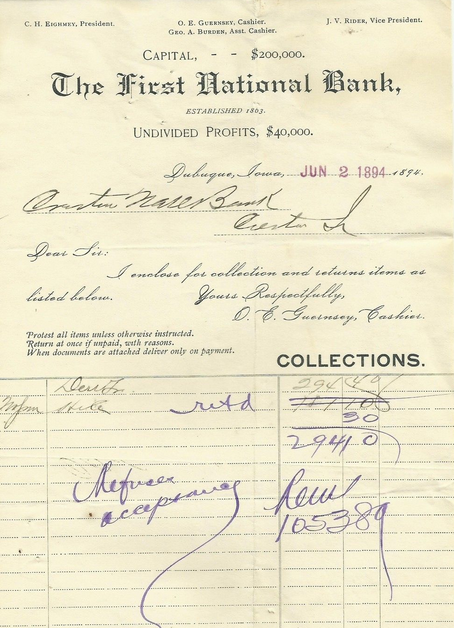 C. H. EIGHMEY, President.
O. E. GUERNSEY, Cashier.
GEO. A. BURDEN, Asst. Cashier.
J. V. RIDER, Vice President.
CAPITAL, - - $200,000.
The First National Bank,
ESTABLISHED 1863.
UNDIVIDED PROFITS, $40,000.
Dubuque, Iowa, JUN 2 1894 1894.
Creston Natl Bank
Creston Ia
Dear Sir:
I enclose for collection and returns items as
listed below. Yours Respectfully,
O. E. Guernsey, Cashier.
Protest all items unless otherwise instructed.
Return at once if unpaid, with reasons.
When documents are attached deliver only on payment.
COLLECTIONS.
294 40
retd
30
294 10
Refuses
acceptance
Rem
105389